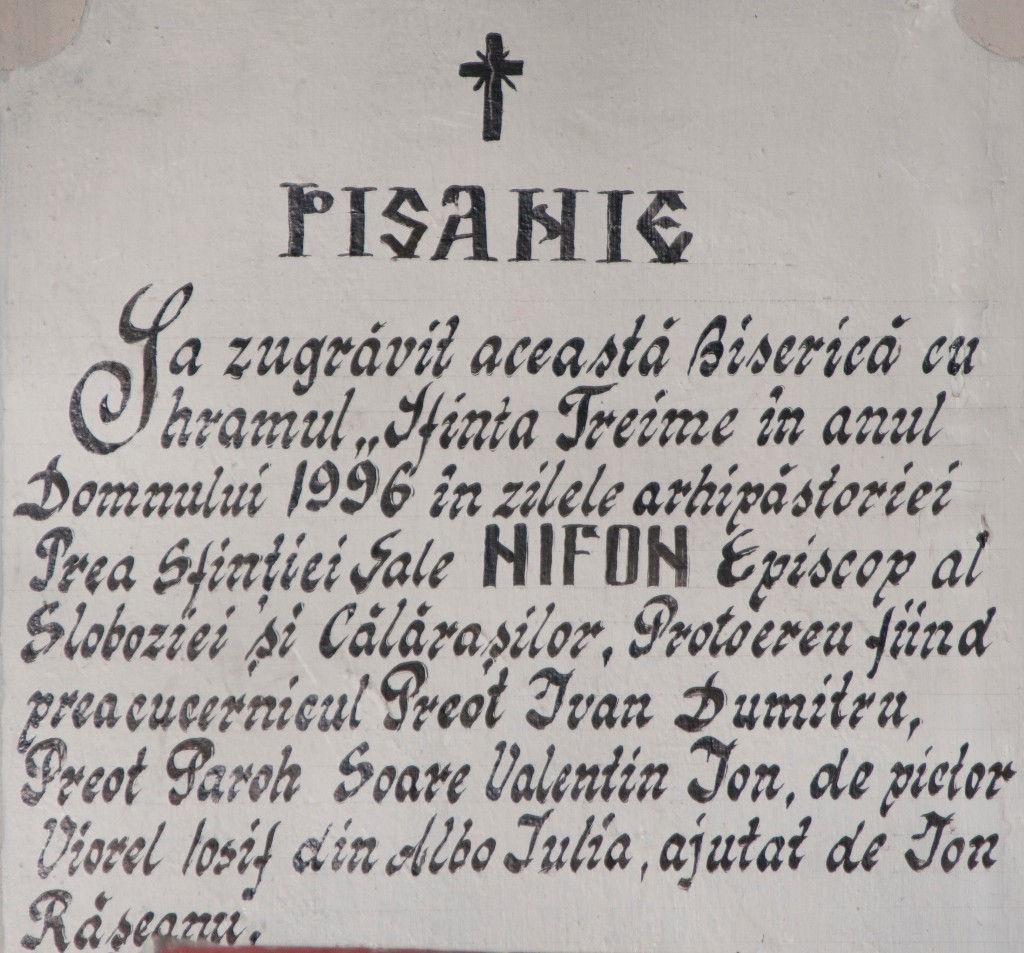 PISANIE
Sa zugrăvit această Biserică cu
hramul „Sfinta Treime în anul
Domnului 1996 în zilele arhipăstoriei
Prea Sfinției Sale NIFON Episcop al
Sloboziei și Călărașilor, Protoereu fiind
preacucernicul Preot Ivan Dumitru,
Preot Paroh Soare Valentin Ion, de pictor
Viorel Iosif din Albo Iulia, ajutat de Ion
Rășeanu.